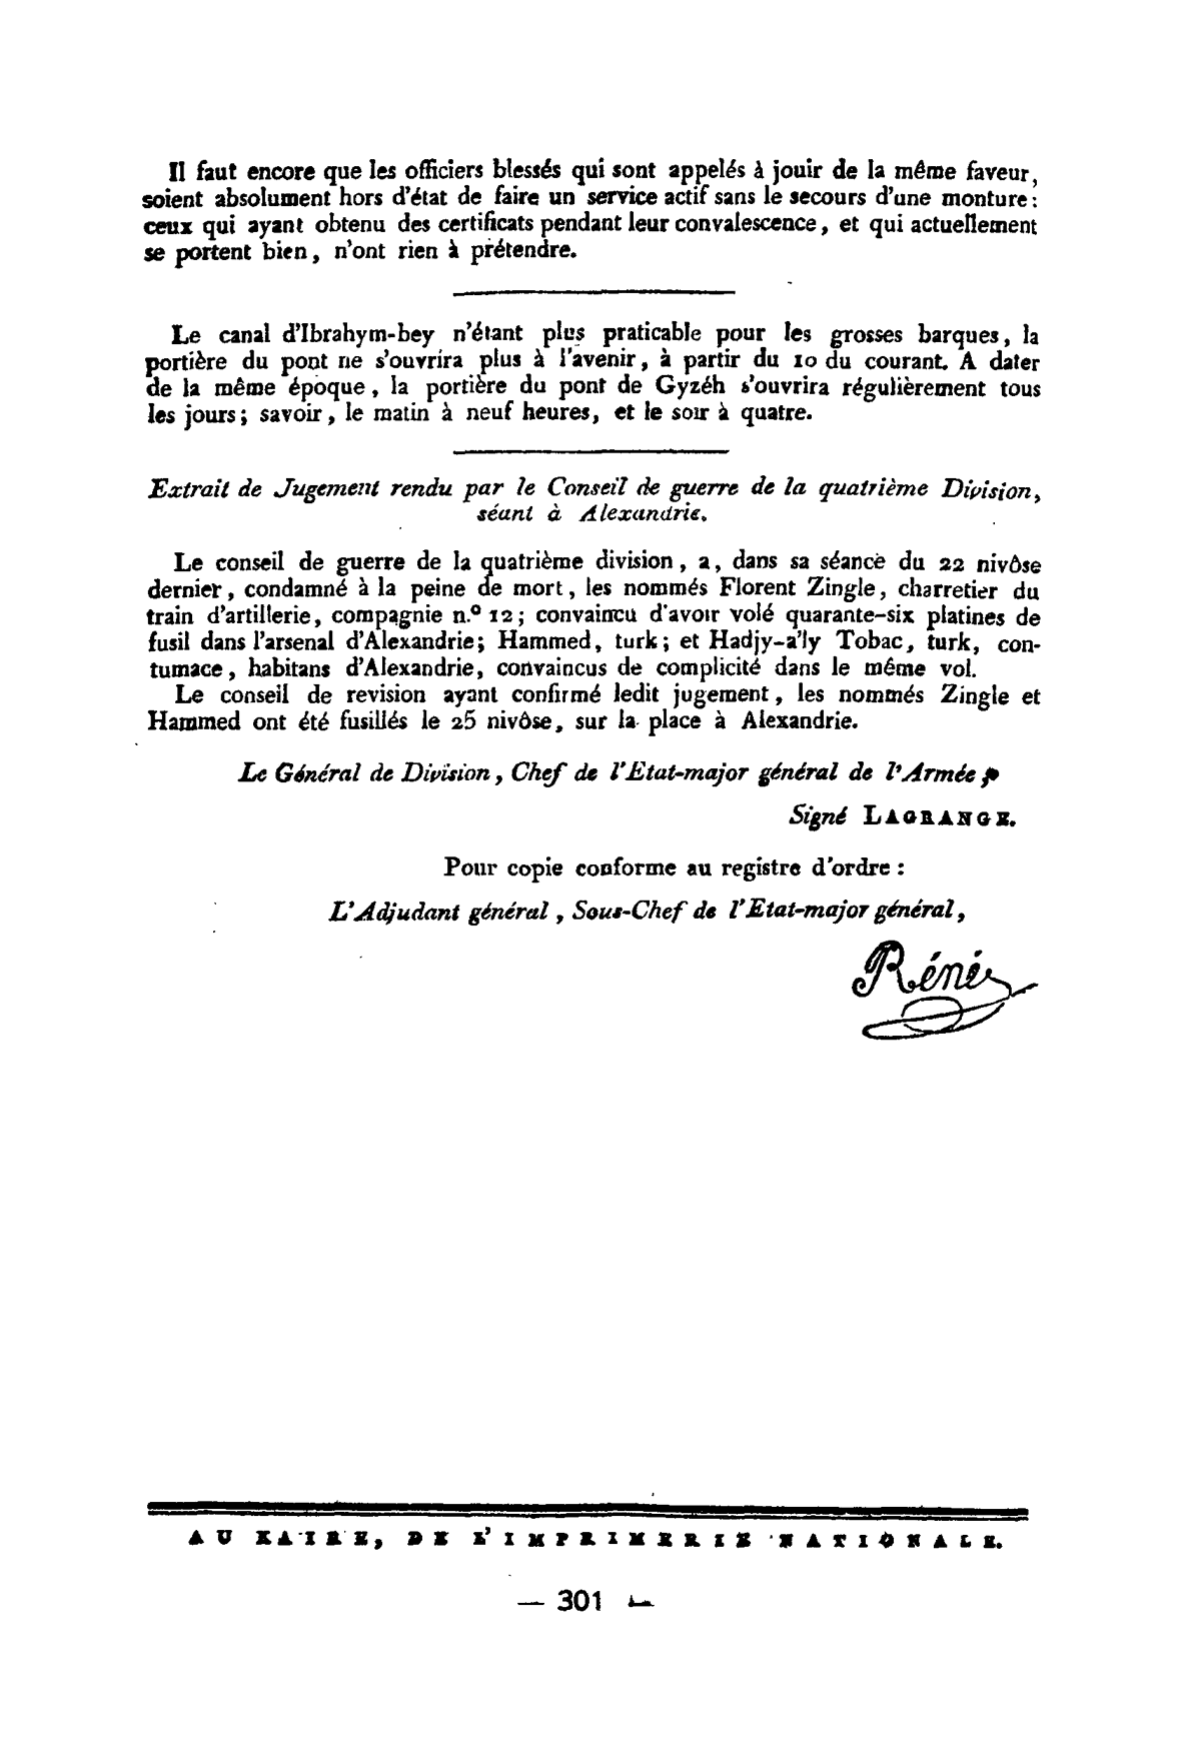 Il faut encore que les officiers blessés qui sont appelés à jouir de la même faveur,
soient absolument hors d'état de faire un service actif sans le secours d'une monture :
ceux qui ayant obtenu des certificats pendant leur convalescence, et qui actuellement
se portent bien, n'ont rien à prétendre.
Le canal d'Ibrahym-bey n'étant plus praticable pour les grosses barques, la
portière du pont ne s'ouvrira plus à l'avenir, à partir du 10 du courant. A dater
de la même époque, la portière du pont de Gyzéh s'ouvrira régulièrement tous
les jours; savoir, le matin à neuf heures, et le soir à quatre.
Extrait de Jugement rendu par le Conseil de guerre de la quatrième Division,
séant à Alexandrie.
Le conseil de guerre de la quatrième division, a, dans sa séance du 22 nivôse
dernier, condamné à la peine de mort, les nommés Florent Zingle, charretier du
train d'artillerie, compagnie n.º 12; convaincu d'avoir volé quarante-six platines de
fusil dans l'arsenal d'Alexandrie; Hammed, turk; et Hadjy-a'ly Tobac, turk, con-
tumace, habitans d'Alexandrie, convaincus de complicité dans le même vol.
Le conseil de revision ayant confirmé ledit jugement, les nommés Zingle et
Hammed ont été fusillés le 25 nivôse, sur la place à Alexandrie.
Le Général de Division, Chef de l'Etat-major général de l'Armée,
Signé LAGRANGE.
Pour copie conforme au registre d'ordre :
L'Adjudant général, Sous-Chef de l'Etat-major général,
Réné
AU KAIRE, DE L'IMPRIMERIE NATIONALE.
— 301 —